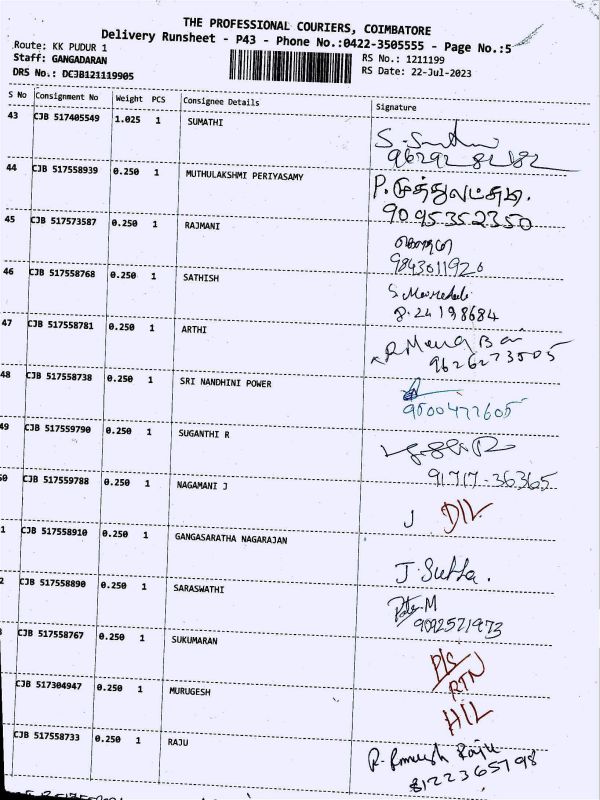 THE PROFESSIONAL COURIERS, COIMBATORE
Delivery Runsheet - P43 - Phone No.:0422-3505555 - Page No.:5
Route: KK PUDUR 1
RS No.: 1211199
Staff: GANGADARAN
RS Date: 22-Jul-2023
DRS No.: DCJB121119905
S No Consignment No Weight PCS Consignee Details Signature
43 CJB 517405549 1.025 1 SUMATHI
44 CJB 517558939 0.250 1 MUTHULAKSHMI PERIYASAMY P. முத்துலட்சுமி.
9095352350
45 CJB 517573587 0.250 1 RAJMANI
9843011920
46 CJB 517558768 0.250 1 SATHISH
8.24198684
47 CJB 517558781 0.250 1 ARTHI
9626273505
48 CJB 517558738 0.250 1 SRI NANDHINI POWER
9500477605
49 CJB 517559790 0.250 1 SUGANTHI R
91717-36365
50 CJB 517559788 0.250 1 NAGAMANI J J D/L
1 CJB 517558910 0.250 1 GANGASARATHA NAGARAJAN
J. Sutha.
2 CJB 517558890 0.250 1 SARASWATHI M
9092521973
3 CJB 517558767 0.250 1 SUKUMARAN P/S
RTN
CJB 517304947 0.250 1 MURUGESH H/L
CJB 517558733 0.250 1 RAJU R. Ramesh Raju
8122365798